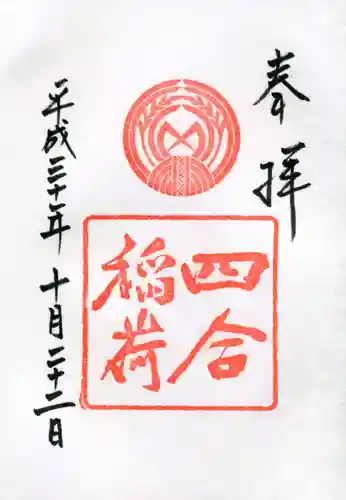 奉拝
四合
稲荷
平成三十年 十月二十二日